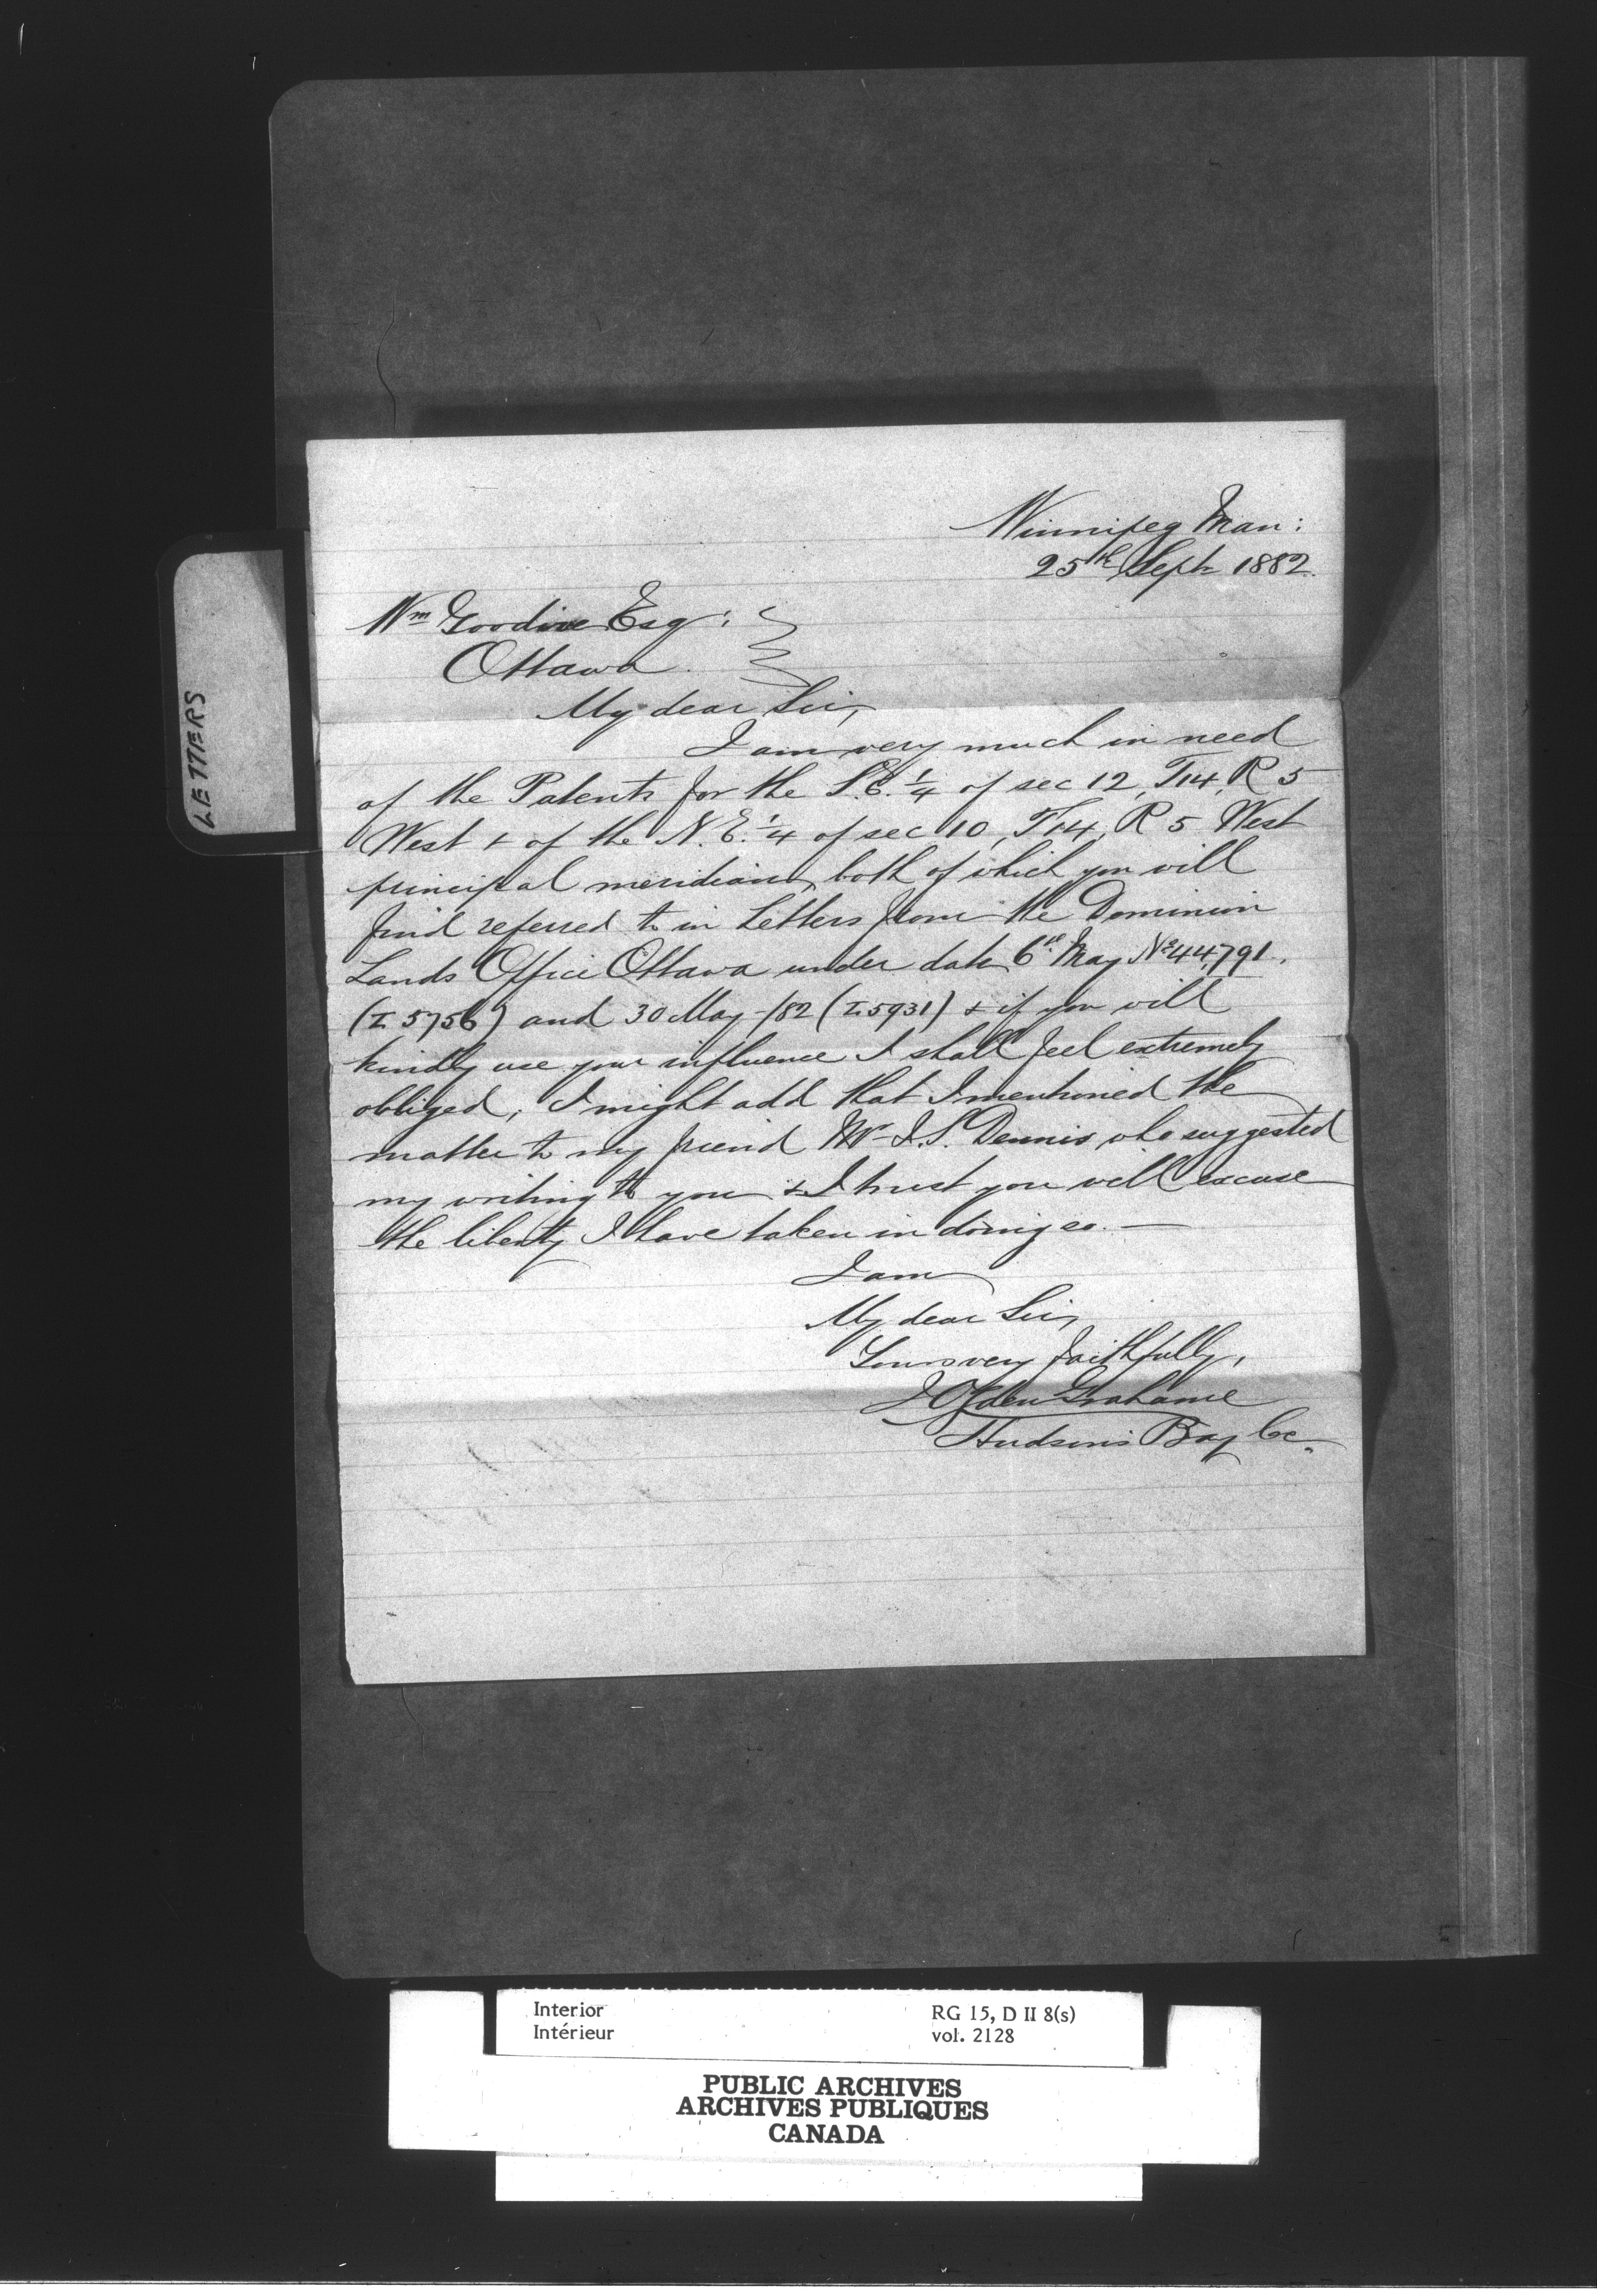 Winnipeg Man:
25th Sept 1882.
Wm Goodive Esq:
Ottawa.
My dear Sir,
I am very much in need
of the Patents for the S.E. 1/4 of sec 12, T14, R 5
West + of the N.E. 1/4 of sec 10, T14, R 5 West
principal meridian, both of which you will
find referred to in Letters from the Dominion
Lands Office Ottawa under date 6th May No 44,791.
(I 5756) and 30 May /82 (I 5931) + if you will
kindly use your influence I shall feel extremely
obliged, I might add that I mentioned the
matter to my friend Mr J.S. Dennis who suggested
my writing to you + I trust you will excuse
the liberty I have taken in doing so. —
I am
My dear Sir,
Yours very faithfully,
J Ogden Grahame
Hudson's Bay Co.
LETTERS
Interior
Intérieur
RG 15, D II 8(s)
vol. 2128
PUBLIC ARCHIVES
ARCHIVES PUBLIQUES
CANADA